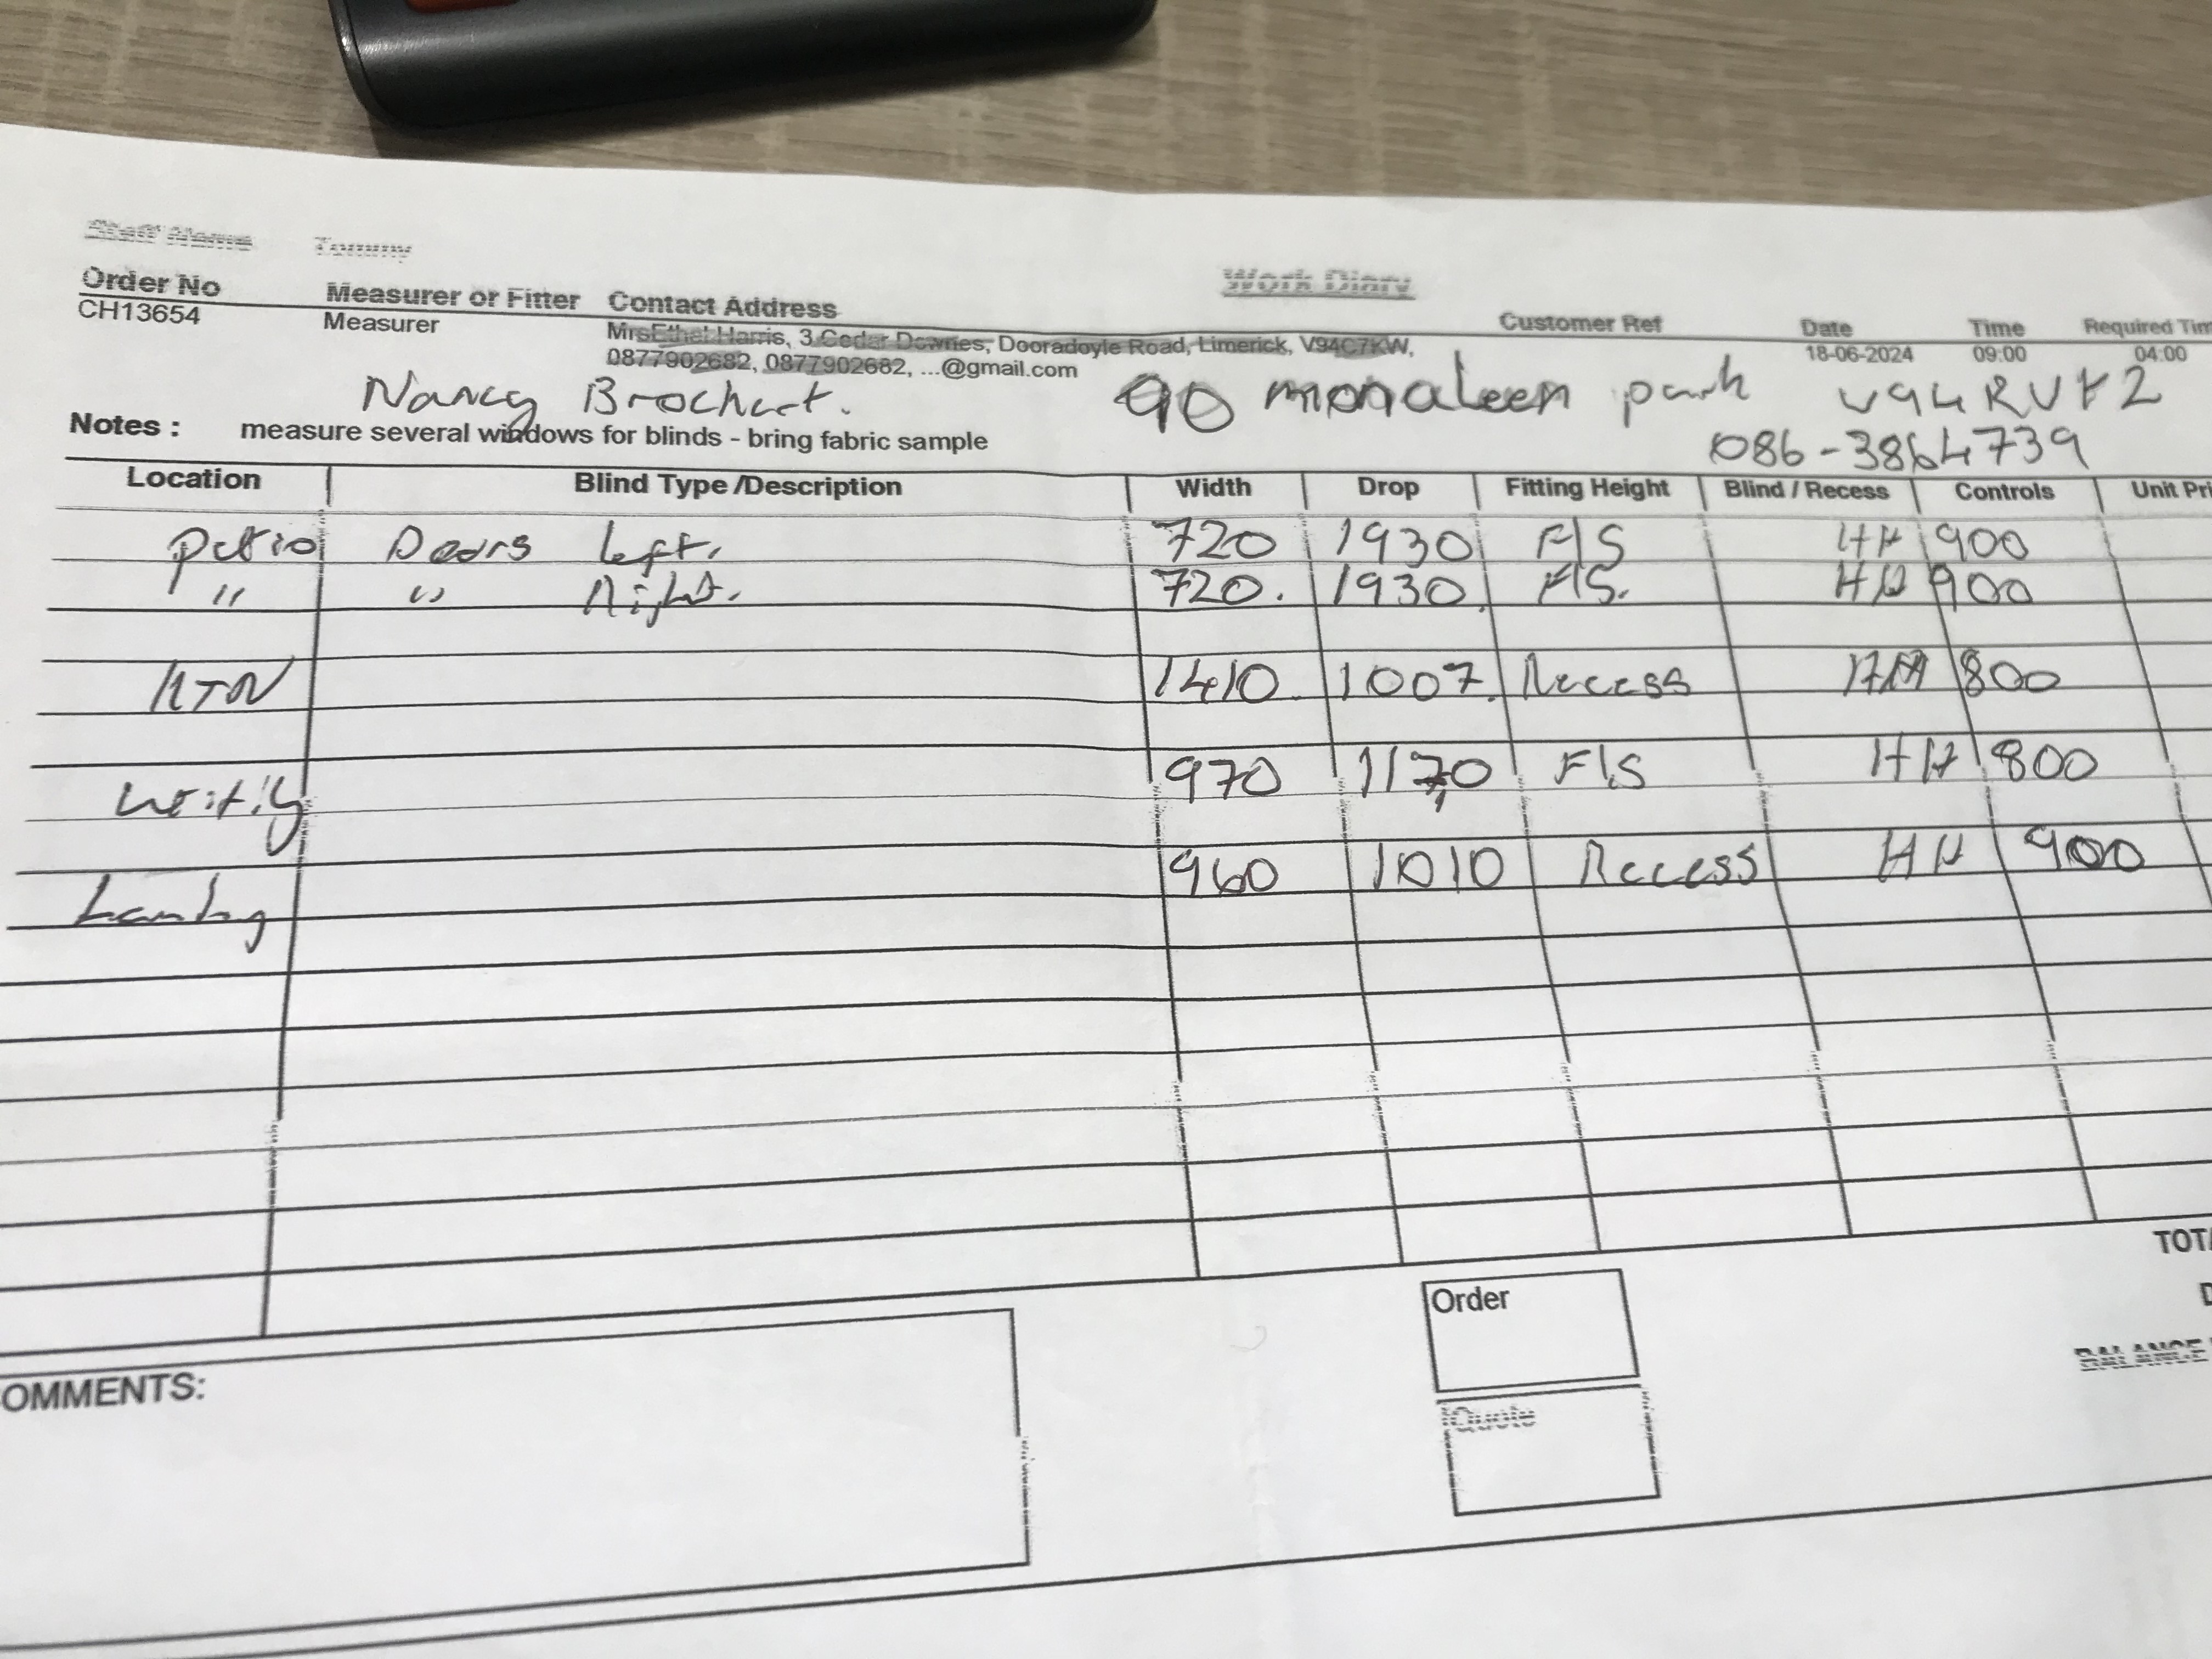 Staff Name Tommy
Work Diary
Order No Measurer or Fitter Contact Address Customer Ref Date Time Required Tim
CH13654 Measurer MrsEthel Harris, 3 Cedar Downes, Dooradoyle Road, Limerick, V94C7KW, 18-06-2024 09:00 04:00
0877902682, 0877902682, ...@gmail.com
Nancy 90 monaleen park
Notes : measure several windows for blinds - bring fabric sample
086-3864739
Location Blind Type /Description Width Drop Fitting Height Blind / Recess Controls Unit Pri
Patio Doors left. 720 1930 F/S 900
" " Right. 720. 1930 F/S. 900
KTN 1410. 1007. Recess 800
970 1170 F/S 800
960 1010 Recess 900
Landing
TOTA
D
Order
BALANCE
OMMENTS:
Quote